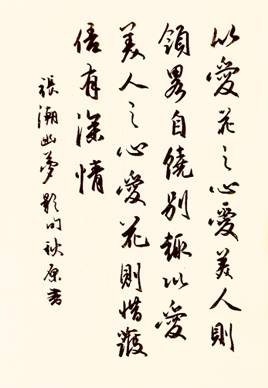 以愛花之心愛美人則
領畧自饒別趣以愛
美人之心愛花則惜護
倍有深情
張潮幽夢影句秋原書